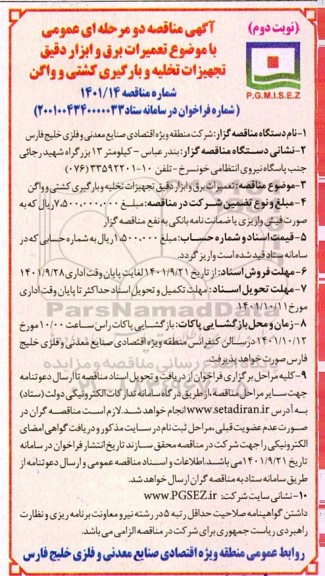 (نوبت دوم)
آگهی مناقصه دو مرحله ای عمومی
با موضوع تعمیرات برق و ابزار دقیق
تجهیزات تخلیه و بارگیری کشتی و واگن
P.G.M.I.S.E.Z
شماره مناقصه ۱۴۰۱/۱۴
(شماره فراخوان در سامانه ستاد ۲۰۰۱۰۰۴۳۴۰۰۰۰۳۳)
۱-نام دستگاه مناقصه گزار: شرکت منطقه ویژه اقتصادی صنایع معدنی و فلزی خلیج فارس
۲-نشانی دستگاه مناقصه گزار: بندرعباس - کیلومتر ۱۳ بزرگراه شهید رجائی
جنب پاسگاه نیروی انتظامی خونسرخ - تلفن ۱۰-۳۳۵۹۲۲۰۱ (۰۷۶)
۳-موضوع مناقصه: تعمیرات برق و ابزار دقیق تجهیزات تخلیه و بارگیری کشتی و واگن
۴- مبلغ و نوع تضمین شرکت در مناقصه: مبلغ ۷،۵۰۰،۰۰۰،۰۰۰ ریال که به
صورت فیش واریزی یا ضمانت نامه بانکی به نفع مناقصه گزار
۵-قیمت اسناد و شماره حساب: مبلغ ۱،۵۰۰،۰۰۰ ریال به شماره حسابی که در
سامانه ستاد قید شده است واریز گردد.
۶- مهلت فروش اسناد: از تاریخ ۱۴۰۱/۹/۲۱ لغایت پایان وقت اداری ۱۴۰۱/۹/۲۸
۷- مهلت تحویل اسناد: مهلت تکمیل و تحویل اسناد حداکثر تا پایان وقت اداری
مورخ ۱۴۰۱/۱۰/۱۱
۸-زمان و محل بازگشایی پاکات: بازگشایی پاکات راس ساعت ۱۰/۰۰ مورخ
۱۴۰۱/۱۰/۱۲ در سالن کنفرانس منطقه ویژه اقتصادی صنایع معدنی و فلزی خلیج
فارس صورت خواهد پذیرفت.
۹-کلیه مراحل برگزاری فراخوان از دریافت و تحویل اسناد مناقصه تا ارسال دعوتنامه
جهت سایر مراحل مناقصه، از طریق درگاه سامانه تدارکات الکترونیکی دولت (ستاد)
به آدرس www.setadiran.ir انجام خواهد شد. لازم است مناقصه گران در
صورت عدم عضویت قبلی، مراحل ثبت نام در سایت مذکور و دریافت گواهی امضای
الکترونیکی را جهت شرکت در مناقصه محقق سازند تاریخ انتشار فراخوان در سامانه
تاریخ ۱۴۰۱/۹/۲۱ می باشد. اطلاعات و اسناد مناقصه عمومی و ارسال دعوتنامه از
طریق سامانه ستاد به مناقصه گران ارسال خواهد شد.
۱۰-نشانی سایت شرکت: www.PGSEZ.ir
داشتن گواهینامه صلاحیت حداقل رتبه ۵ در رشته نیرو و معاونت برنامه ریزی و نظارت
راهبردی ریاست جمهوری برای شرکت در مناقصه الزامی می باشد.
روابط عمومی منطقه ویژه اقتصادی صنایع معدنی و فلزی خلیج فارس
ParsNamadData